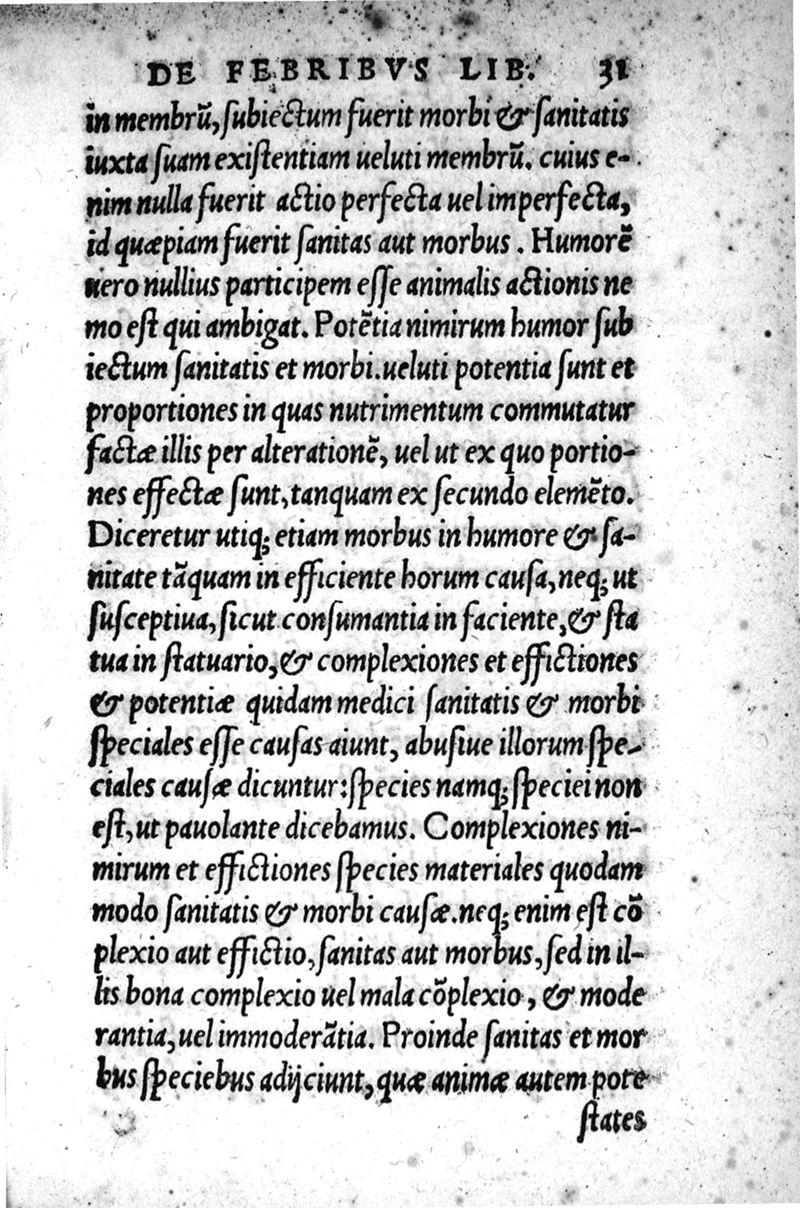 DE FEBRIBVS LIB. 31
in membrũ, subiectum fuerit morbi & sanitatis
iuxta suam existentiam ueluti membrũ. cuius e-
nim nulla fuerit actio perfecta uel imperfecta,
id quæpiam fuerit sanitas aut morbus. Humorẽ
uero nullius participem esse animalis actionis ne
mo est qui ambigat. Potẽtia nimirum humor sub
iectum sanitatis et morbi. ueluti potentia sunt et
proportiones in quas nutrimentum commutatur
factæ illis per alterationẽ, uel ut ex quo portio-
nes effectæ sunt, tanquam ex secundo elemẽto.
Diceretur utiq; etiam morbus in humore & sa-
nitate tãquam in efficiente horum causa, neq; ut
susceptiua, sicut consumantia in faciente, & sta
tua in statuario, & complexiones et effictiones
& potentiæ quidam medici sanitatis & morbi
speciales esse causas aiunt, abusiue illorum spe-
ciales causæ dicuntur: species namq; speciei non
est, ut pauolante dicebamus. Complexiones ni-
mirum et effictiones species materiales quodam
modo sanitatis & morbi causæ. neq; enim est cõ
plexio aut effictio, sanitas aut morbus, sed in il-
lis bona complexio uel mala cõplexio, & mode
rantia, uel immoderãtia. Proinde sanitas et mor
bus speciebus adijciunt, quæ animæ autem pote
states